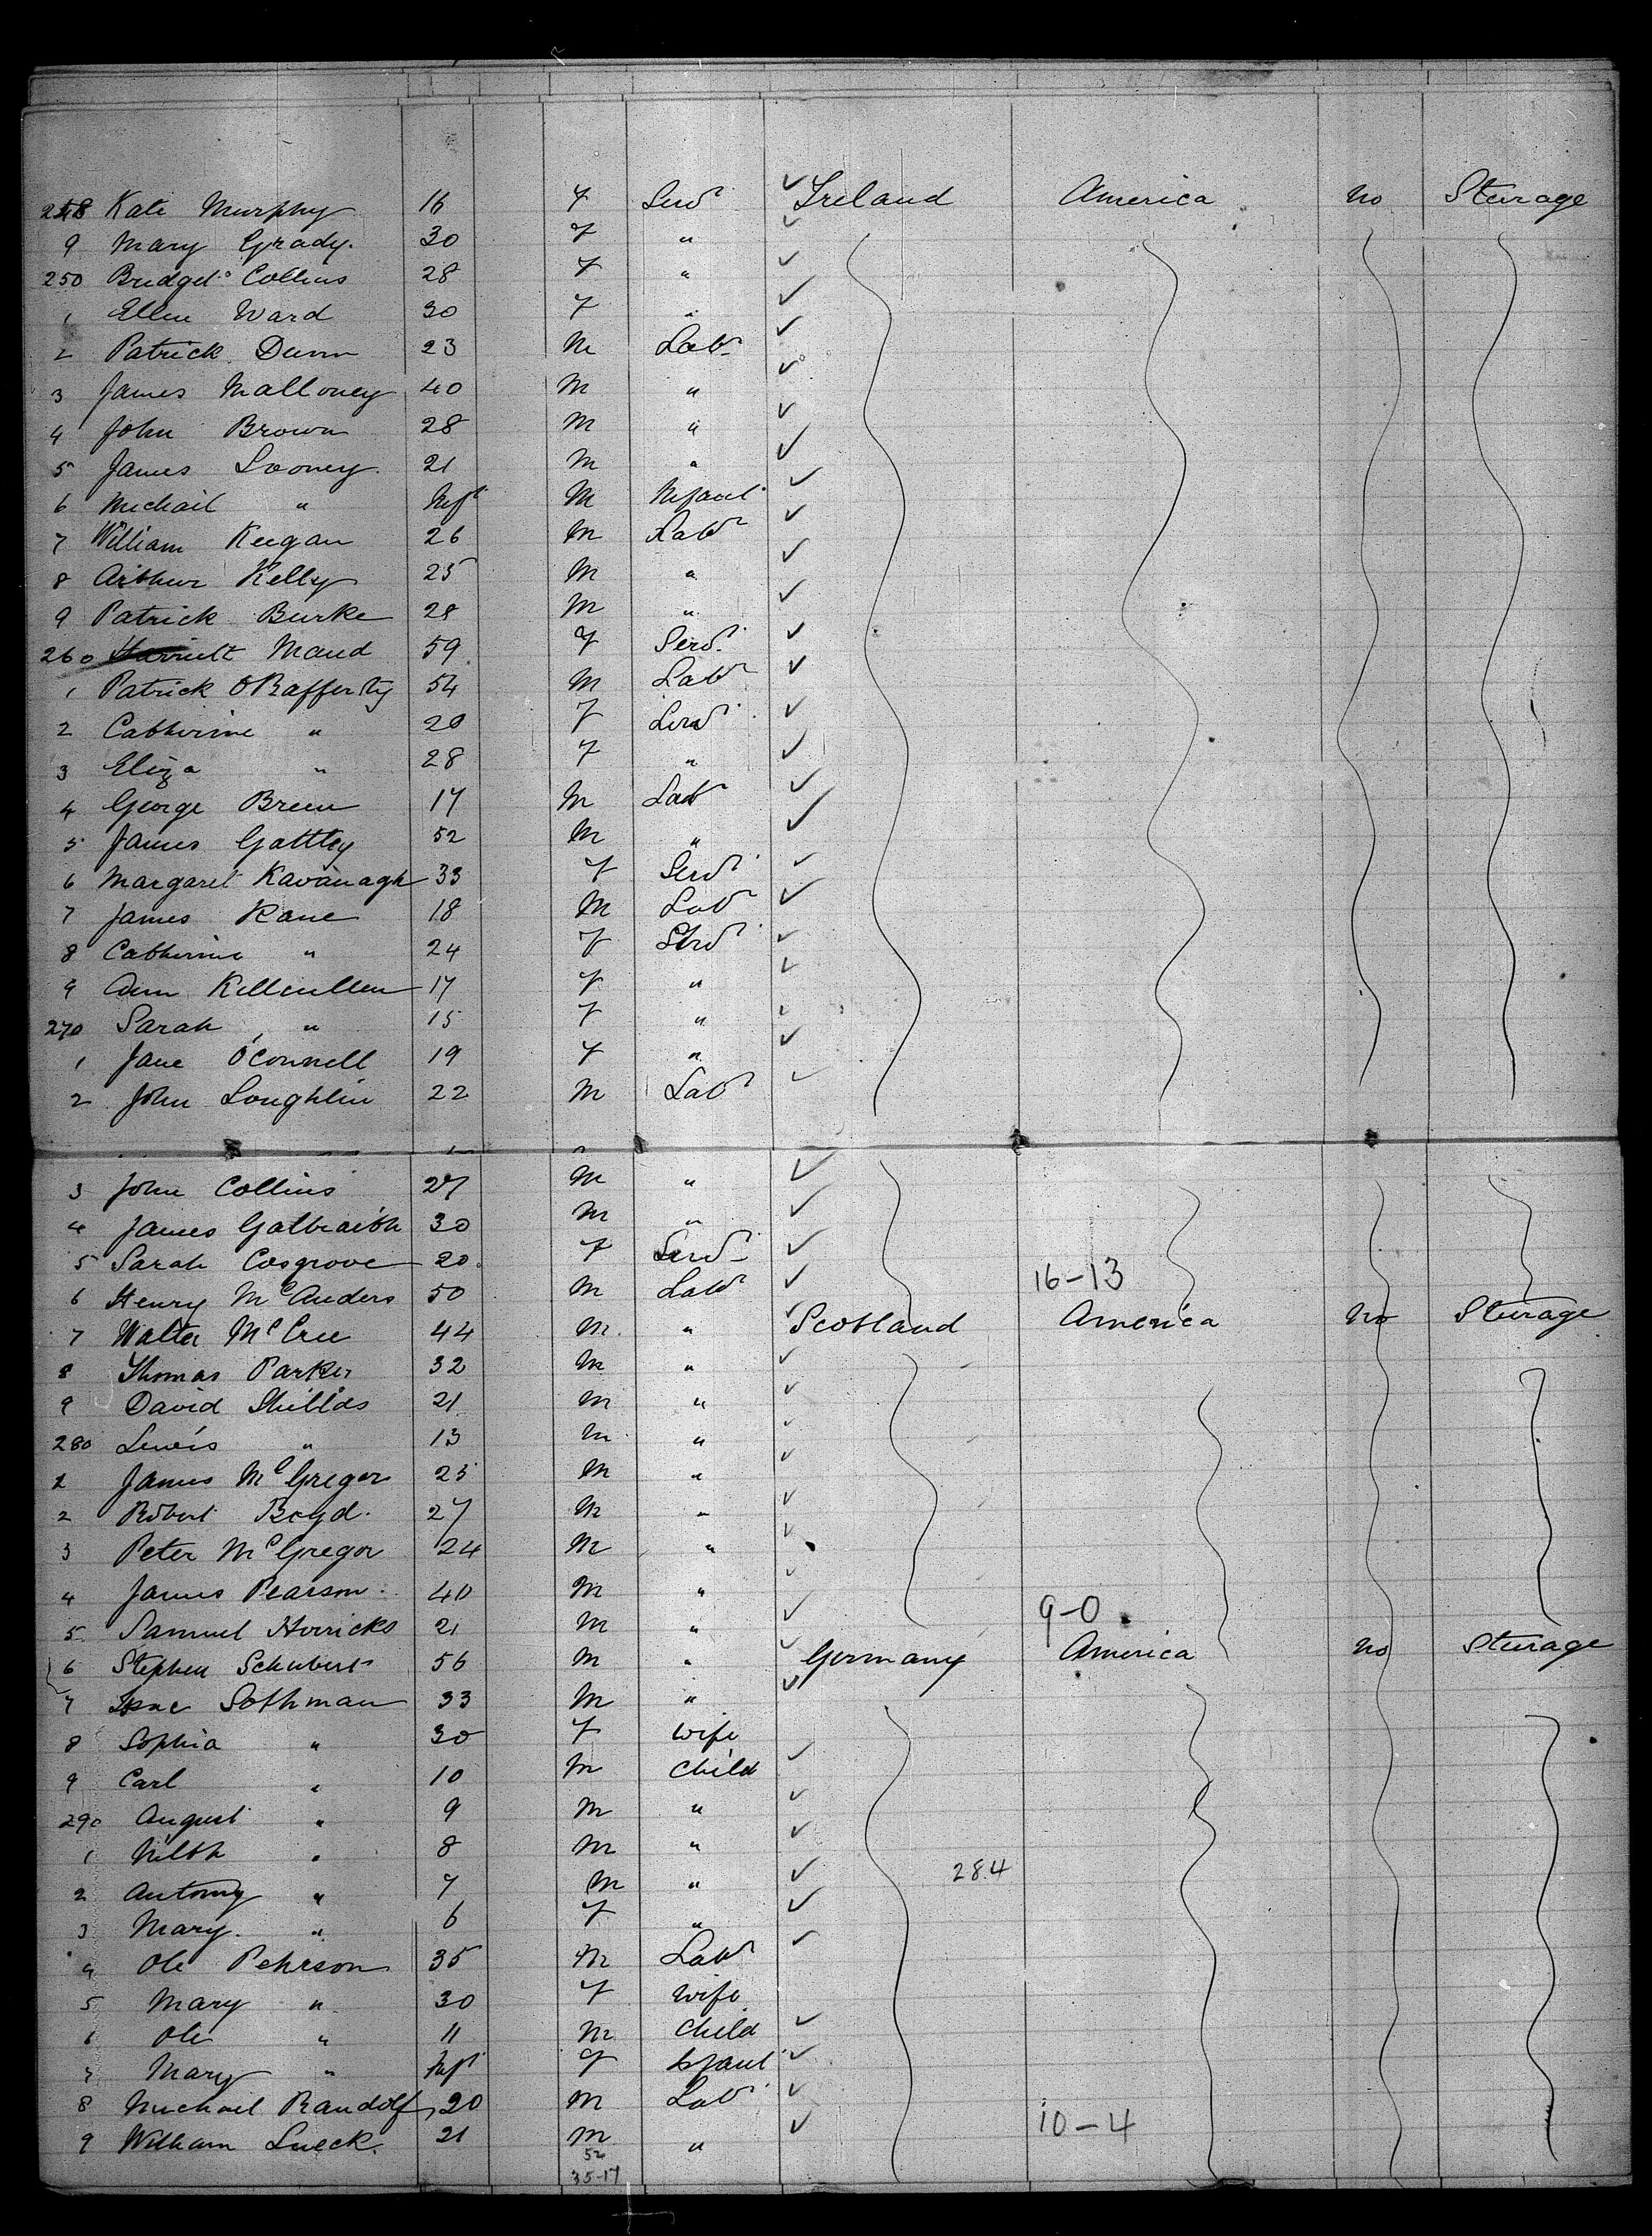 248 Kate Murphy 16 F Serv't Ireland America no Steerage
9 Mary Grady. 30 F "
250 Bridget Collins 28 F "
1 Ellen Ward 30 F "
2 Patrick Dunn 23 M Lab'r
3 James Malloney 40 M "
4 John Brown 28 M "
5 James Looney 21 M "
6 Michail " Inft M Infant
7 William Keegan 26 M Lab'r
8 Arthur Kelly 25 M "
9 Patrick Burke 28 M "
260 Harriett Maud 59 F Serv't
1 Patrick O'Rafferty 54 M Lab'r
2 Catherine " 20 F Serv't
3 Eliza " 28 F "
4 George Breen 17 M Lab'r
5 James Gattley 52 M "
6 Margaret Kavanagh 33 F Serv't
7 James Kane 18 M Lab'r
8 Catherine " 24 F Serv't
9 Ann Killcullen 17 F "
270 Sarah " 15 F "
1 Jane O'Connell 19 F "
2 John Loughlin 22 M Lab'r
3 John Collins 27 M "
4 James Galbraith 30 M "
5 Sarah Cosgrove 20 F Serv't
6 Henry McAnders 50 M Lab'r 16-13
7 Walter McCree 44 M " Scotland America no Steerage
8 Thomas Parker 32 M "
9 David Shillds 21 M "
280 Lewis " 13 M "
1 James McGregor 25 M "
2 Robert Boyd 27 M "
3 Peter McGregor 24 M "
4 James Pearson 40 M "
5 Samuel Horricks 21 M " 9-0
6 Stephen Schubert 56 M " Germany America no Steerage
7 Sothman 33 M "
8 Sophia " 30 F wife
9 Carl " 10 M Child
290 August " 9 M "
1 " 8 M "
2 Antony " 7 M " 284
3 Mary " 6 F "
4 Ole Pehrson 35 M Lab'r
5 Mary " 30 F wife
6 Ole " 11 M Child
7 Mary " Inft F Infant
8 Michail Randolf 20 M Lab'r
9 William Lueck. 21 M " 10-4
52
35-17